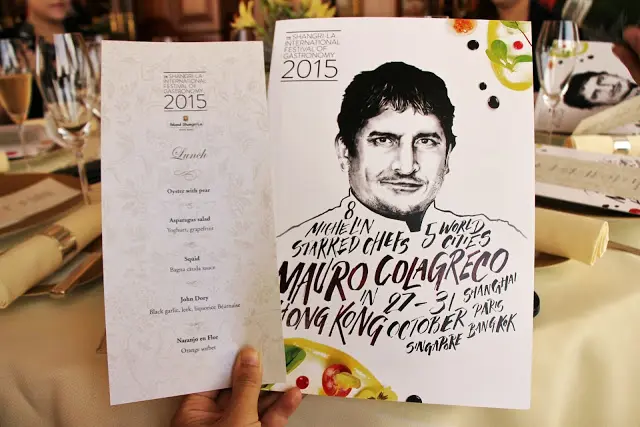 THE SHANGRI-LA
INTERNATIONAL
FESTIVAL OF
GASTRONOMY
2015
Island Shangri-La
Lunch
Oyster with pear
Asparagus salad
Yoghurt, grapefruit
Squid
Bagna cauda sauce
John Dory
Black garlic, leek, Saponsee Béarnaise
Naranjo en Flor
Orange sorbet
THE SHANGRI-LA
INTERNATIONAL
FESTIVAL OF
GASTRONOMY
2015
8
MICHELIN
STARRED CHEFS
5 WORLD
CITIES
MAURO COLAGRECO
IN
HONG KONG
27-31
OCTOBER
SHANGHAI
PARIS
BANGKOK
SINGAPORE